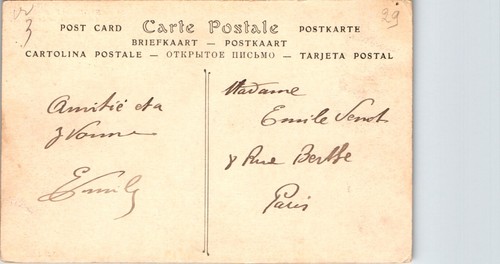 3
29
POST CARD Carte Postale POSTKARTE
BRIEFKAART — POSTKAART
CARTOLINA POSTALE — ОТКРЫТОЕ ПИСЬМО — TARJETA POSTAL
Amitié et a
Yvonne
Emily
Madame
Emile Senot
8 Rue Berthe
Paris